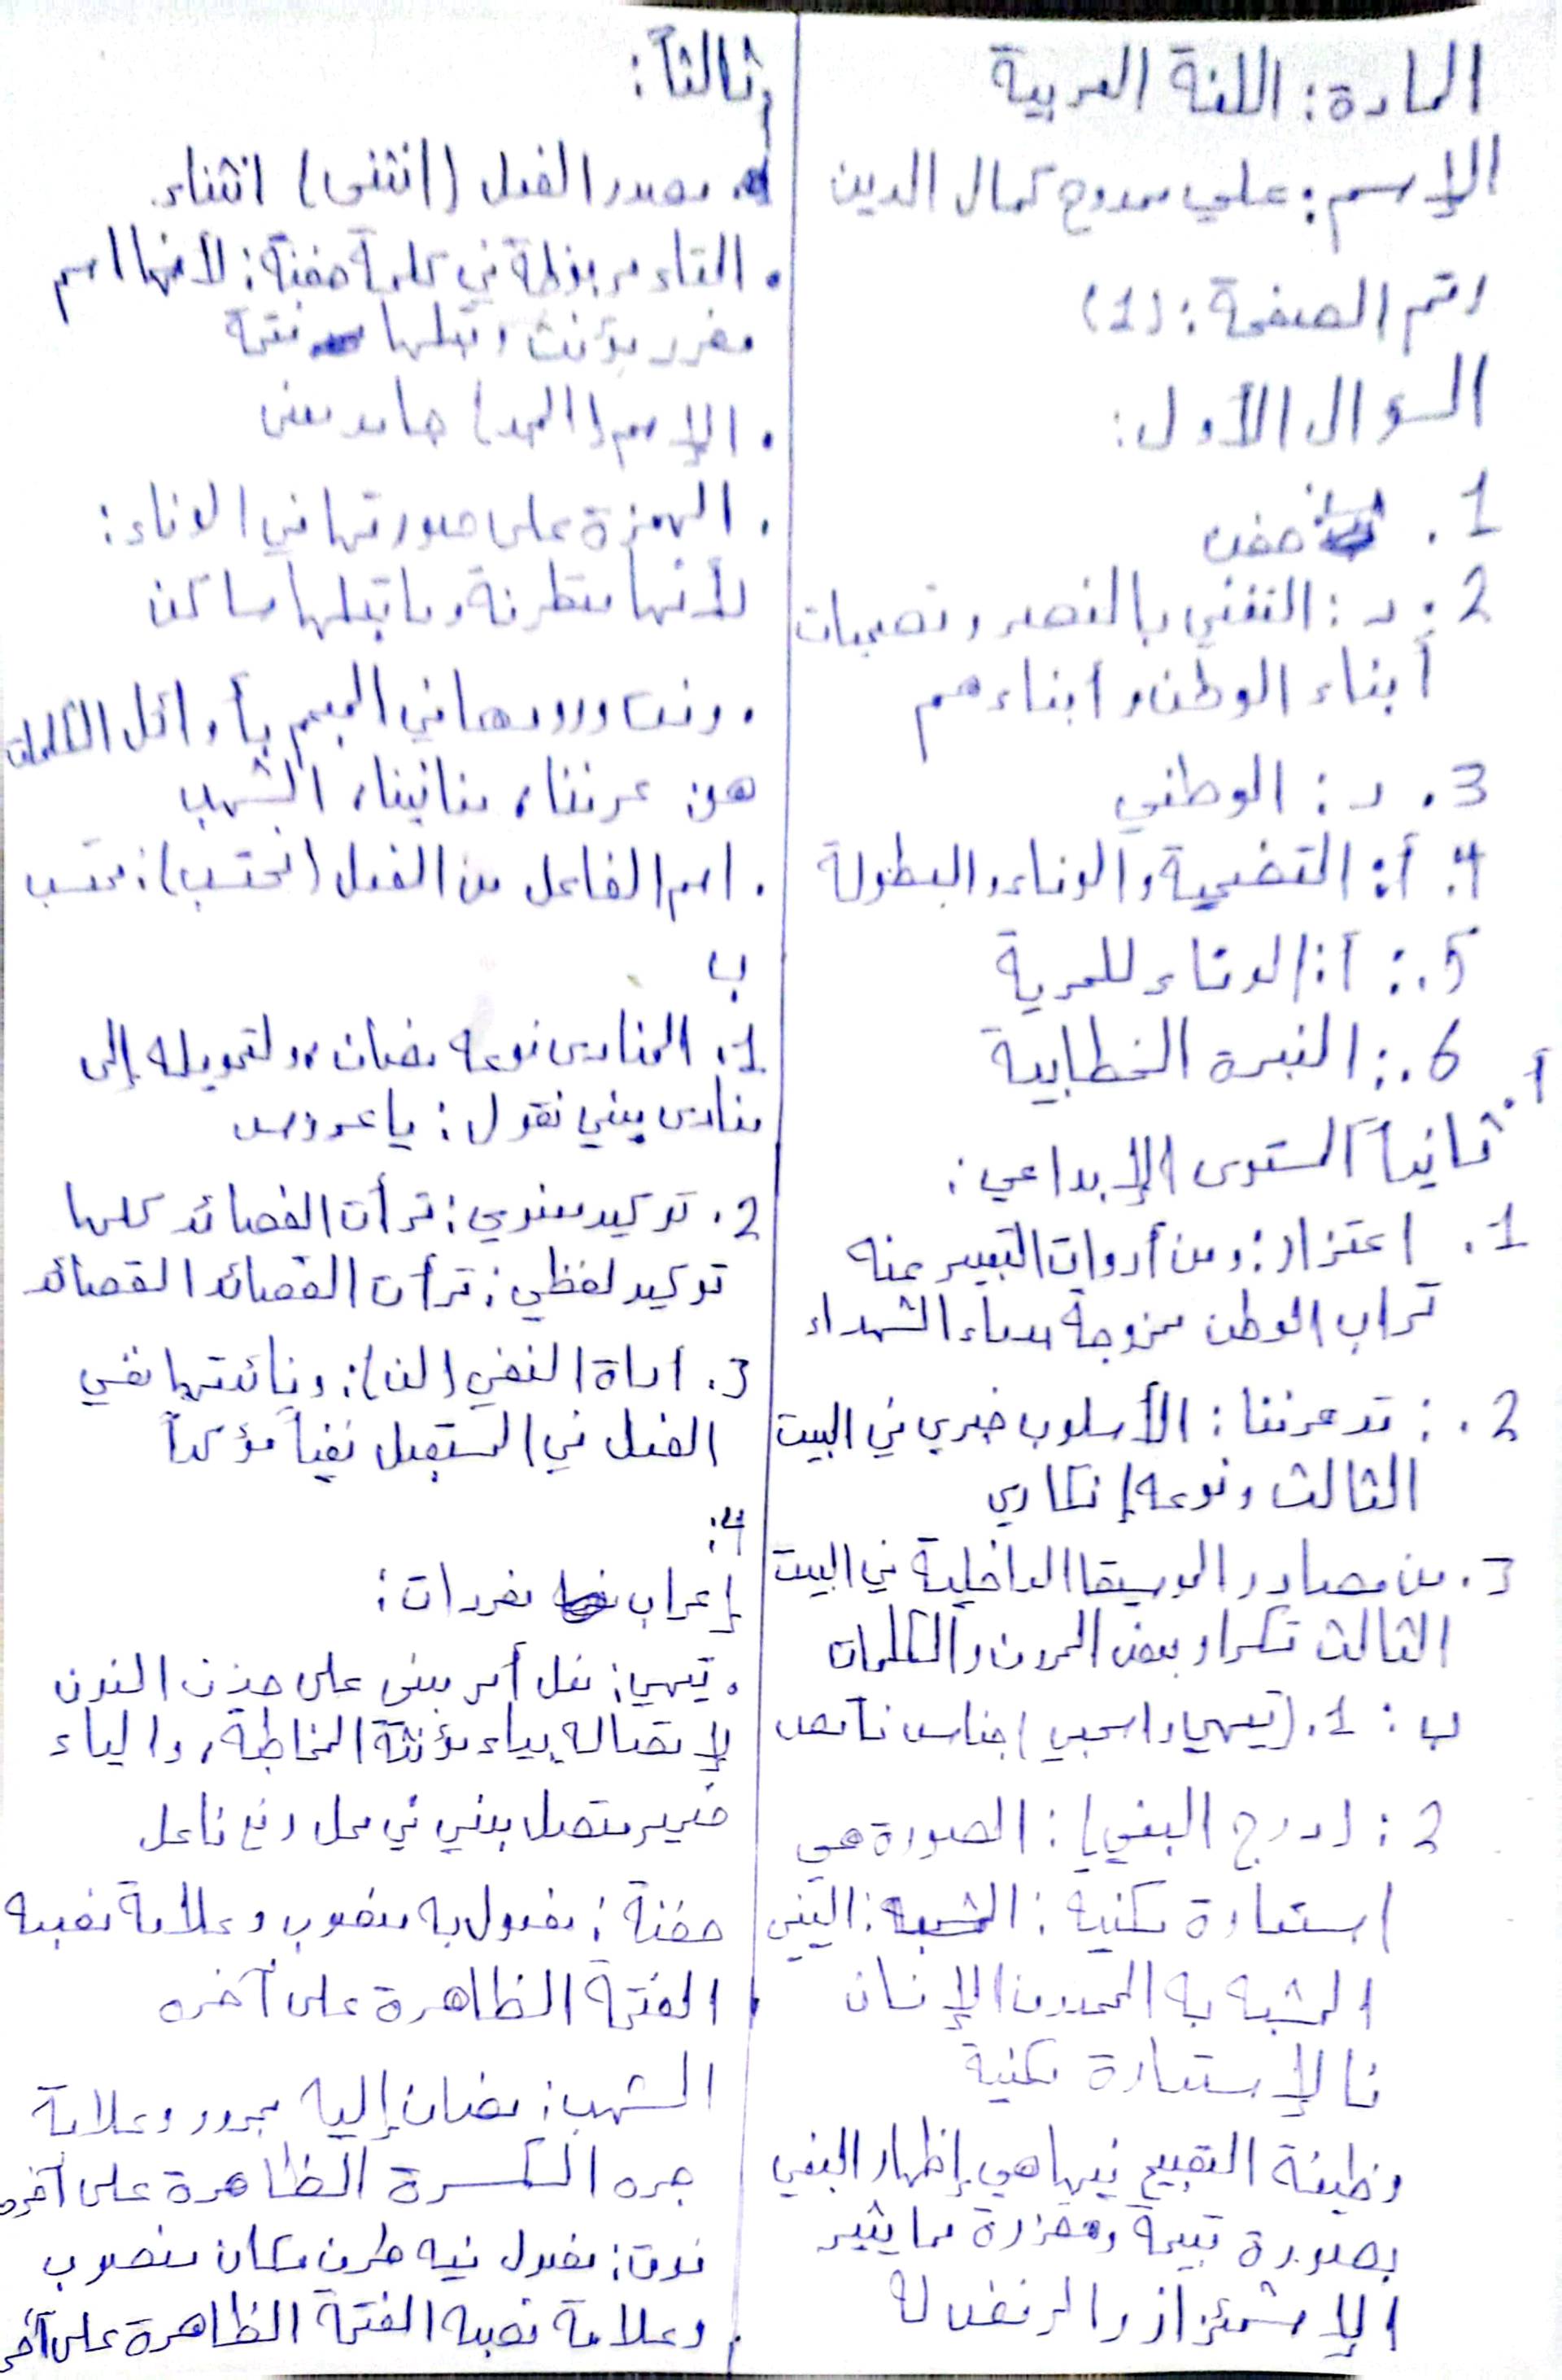 المادة: اللغة العربية
الإسم: علي ممدوح كمال الدين
رقم الصفحة: (1)
السؤال الأول:
1. حفن
2. د: التغني بالنصر وتضحيات
أبناء الوطن وأبناءهم
3. د: الوطني
4. أ: التضحية والوفاء والبطولة
5. أ: الوفاء للحرية
6. النبرة الخطابية
أ.
ثانياً المستوى الإبداعي:
1. اعتزاز: ومن أدوات التعبير عنه
تراب الوطن ممزوجة بدماء الشهداء
2. قد عرفنا: الأسلوب خبري في البيت
الثالث ونوعه إنكاري
3. من مصادر الموسيقا الداخلية في البيت
الثالث تكرار بعض الحروف والكلمات
ب: 1. (تيهي واسحبي) جناس ناقص
2: (درج البغي): الصورة هي
استعارة مكنية: المشبه: البغي
المشبه به المحذوف الإنسان
فالإستعارة مكنية
وظيفة التقبيح فيها هي إظهار البغي
بصورة قبيحة ومقززة مما يثير
الإشمئزاز والرفض له
ثالثاً:
أ. مصدر الفعل (انثنى) انثناء.
. التاء مربوطة في كلمة حفنة: لأنها اسم
مفرد مؤنث وقبلها فتحة
. الإسم (المجد) جامد معنى
. الهمزة على صورتها في الوفاء:
لأنها متطرفة وما قبلها ساكن
. وفق ورودها في المعجم بأوائل الكلمات
هو: عرفنا، مغانينا، الشهب
. اسم الفاعل من الفعل (نحتسب): محتسب
ب
1. المنادى نوعه مضاف، ولتحويله إلى
منادى مبني نقول: يا عروس
2. توكيد معنوي: قرأت القصائد كلها
توكيد لفظي: قرأت القصائد القصائد
3. أداة النفي (لن): وفائدتها نفي
الفعل في المستقبل نفياً مؤكداً
4:
إعراب مفردات:
. تيهي: فعل أمر مبني على حذف النون
لإتصاله بياء مؤنثة المخاطبة، والياء
ضمير متصل مبني في محل رفع فاعل
حفنة: مفعول به منصوب وعلامة نصبه
الفتحة الظاهرة على آخره
الشهب: مضاف إليه مجرور وعلامة
جره الكسرة الظاهرة على آخره
فوق: مفعول فيه ظرف مكان منصوب
وعلامة نصبه الفتحة الظاهرة على آخر